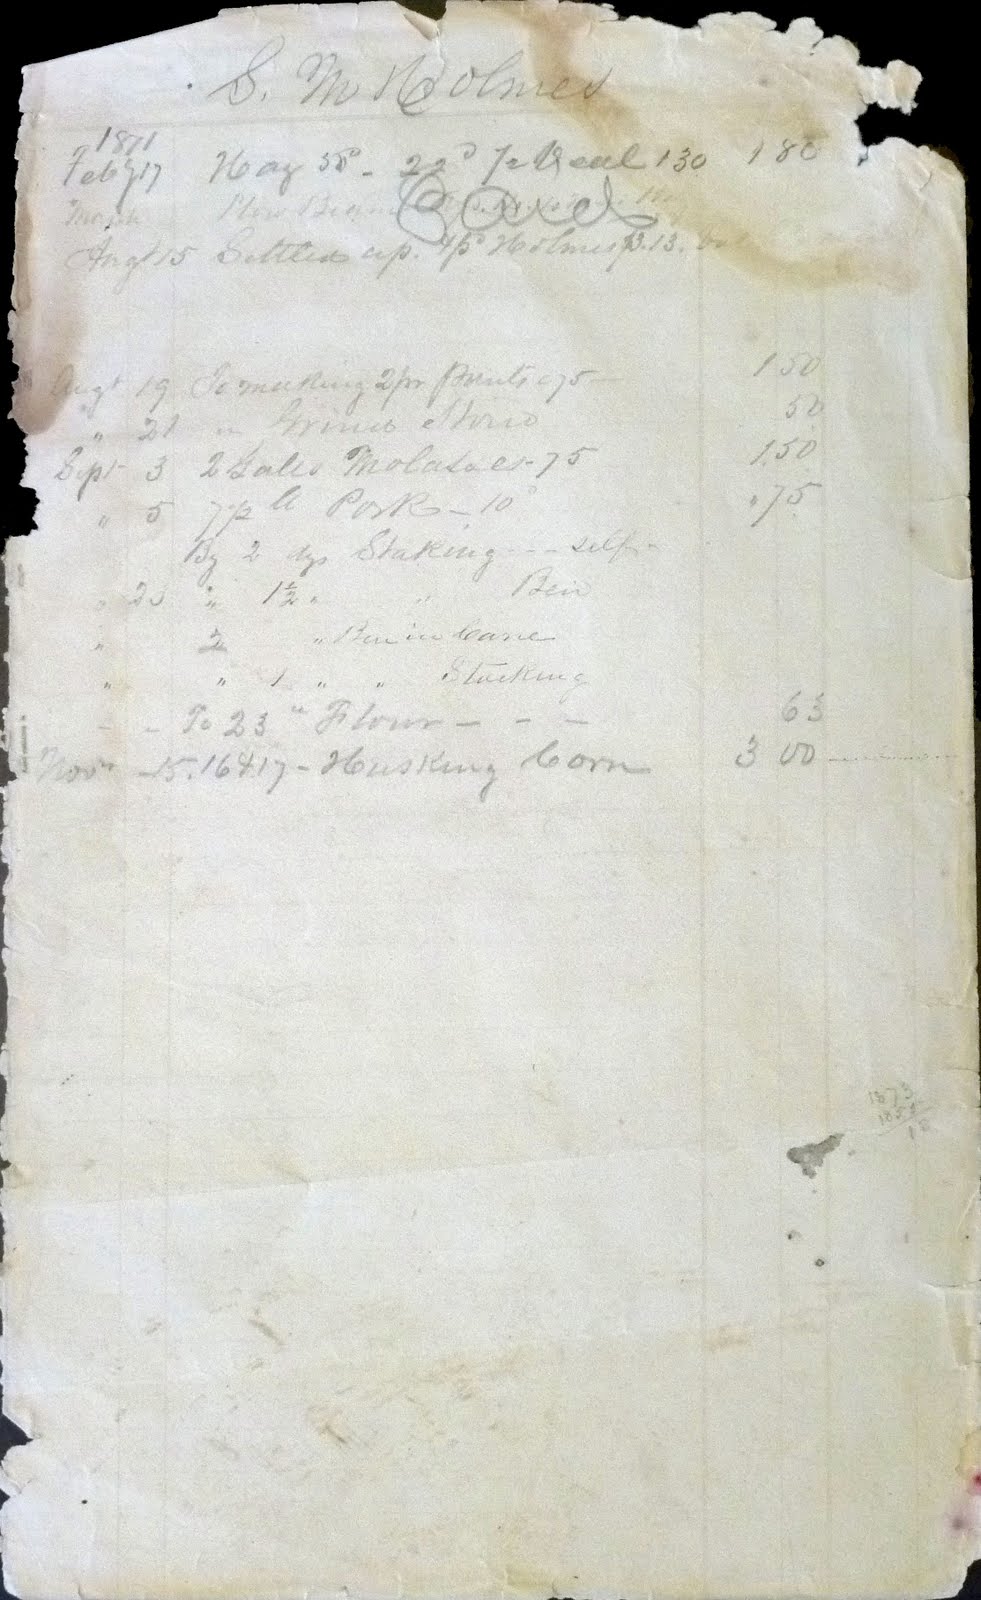 S. M Holmes
1871
Feb'y 17 Hay 50c - 22 Veal 130 180
Plow Beam
Paid
Augt 15 Settled up. Holmes 3.13.
Augt 19 To making 2 pr Pants 75 — 150
" 21 " Grind Stone 50
Sept 3 2 Gales Molasses - 75 1.50
" 5 7½ lb Pork - 10c " 75
By 2 dys Staking - - - self -
" 23 " 1½ " " Ben
" 2 " Ben in Cane
" " 1 " " Stacking
- - To 23 lb Flour - - - 63
Novr 15. 16 & 17 - Husking Corn 3 00
1873
18